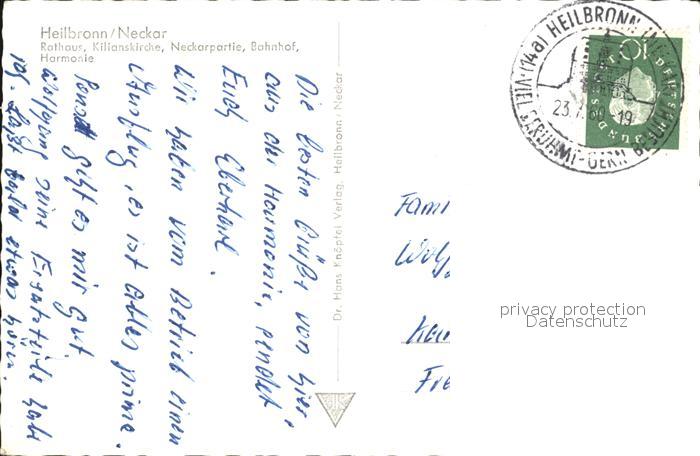 Heilbronn/Neckar
Rathaus, Kilianskirche, Neckarpartie, Bahnhof,
Harmonie
Die besten Grüße von hier,
aus der Harmonie, sendet
Euch Eberhard.
Wir haben vom Betrieb einen
Ausflug, es ist alles prima.
Sonst geht es mir gut
Wolfgang deine Ersatzteile habe
ich. Laßt bald etwas hören.
Dr. Hans Knöpfel Verlag, Heilbronn/Neckar
(14a) HEILBRONN
23.7.60-19
VIEL GERÜHMT-GERN BESUCHT
10
DEUTSCHE BUNDESPOST
Fami
Wolf
Fre
privacy protection
Datenschutz